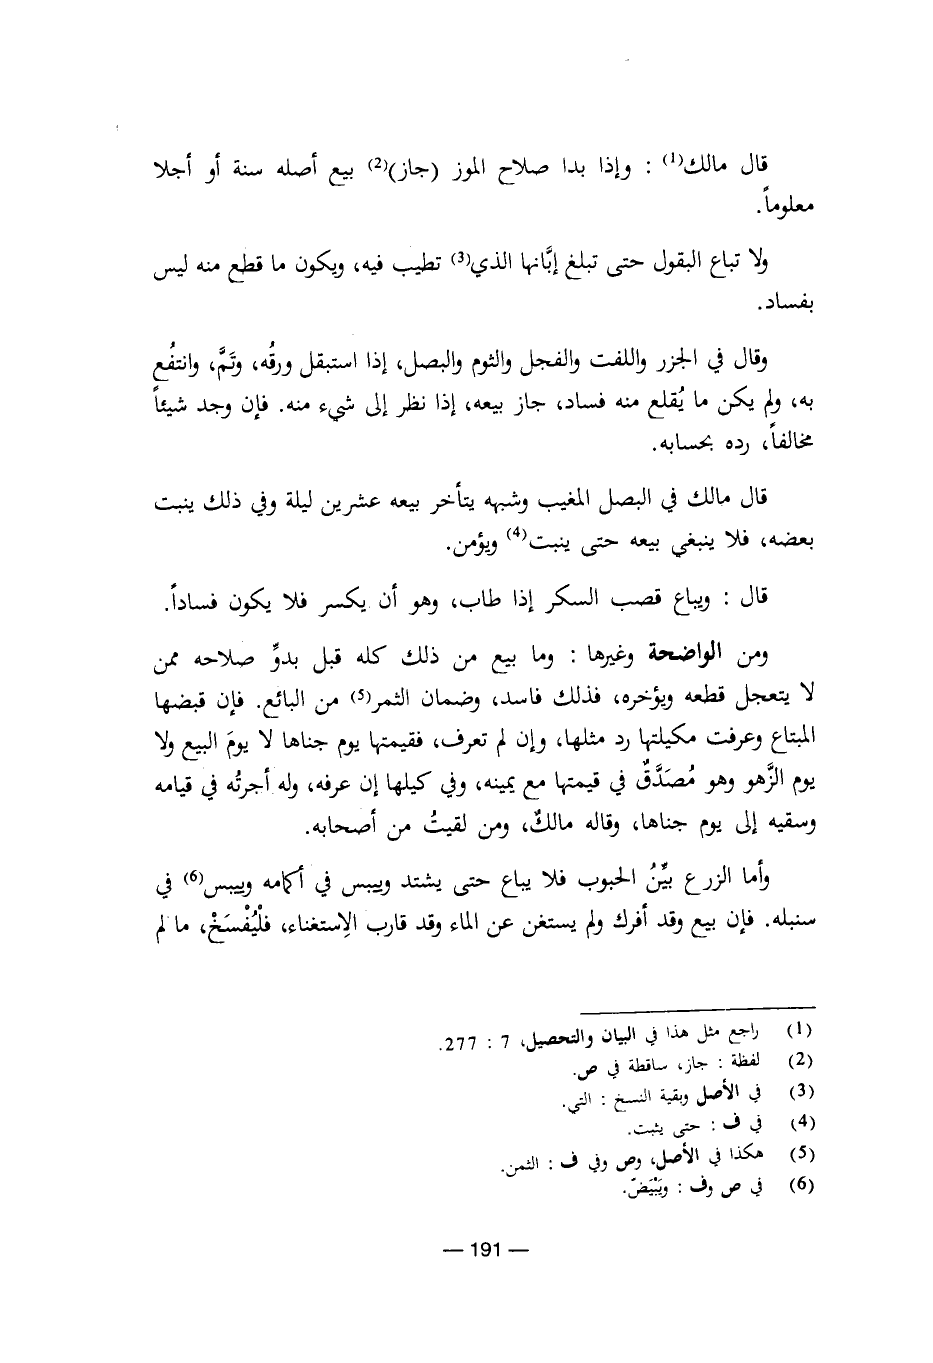 قال مالك(1) : وإذا بدا صلاح الموز (جاز)(2) بيع أصله سنة أو أجلا
معلوماً.
ولا تباع البقول حتى تبلغ إبَّانها الذي(3) تطيب فيه، ويكون ما قطع منه ليس
بفساد.
وقال في الجزر واللفت والفجل والثوم والبصل، إذا استبقل ورقُه، وتَمَّ، وانتفُع
به، ولم يكن ما يُقلع منه فساد، جاز بيعه، إذا نظر إلى شيء منه. فإن وجد شيئاً
مخالفاً، رده بحسابه.
قال مالك في البصل المغيب وشبهه يتأخر بيعه عشرين ليلة وفي ذلك ينبت
بعضه، فلا ينبغي بيعه حتى ينبت(4) ويؤمن.
قال : ويباع قصب السكر إذا طاب، وهو أن يكسر فلا يكون فساداً.
ومن الواضحة وغيرها : وما بيع من ذلك كله قبل بدوِّ صلاحه ممن
لا يتعجل قطعه ويؤخره، فذلك فاسد، وضمان الثمر(5) من البائع. فإن قبضها
المبتاع وعرفت مكيلتها رد مثلها، وإن لم تعرف، فقيمتها يوم جناها لا يومَ البيع ولا
يوم الزَّهو وهو مُصَدَّقٌ في قيمتها مع يمينه، وفي كيلها إن عرفه، وله أجرتُه في قيامه
وسقيه إلى يوم جناها، وقاله مالكٌ، ومن لقيتُ من أصحابه.
وأما الزرع بيِّنُ الحبوب فلا يباع حتى يشتد وييبس في أكمامه وييبس(6) في
سنبله. فإن بيع وقد أفرك ولم يستغن عن الماء وقد قارب الاِستغناء، فلْيُفْسَخْ، ما لم
(1) راجع مثل هذا في البيان والتحصيل، 7 : 277.
(2) لفظة : جاز، ساقطة في ص.
(3) في الأصل وبقية النسخ : التي.
(4) في ف : حتى يثبت.
(5) هكذا في الأصل، وص وفي ف : الثمن.
(6) في ص وف : ويَبْيَضّ.
— 191 —